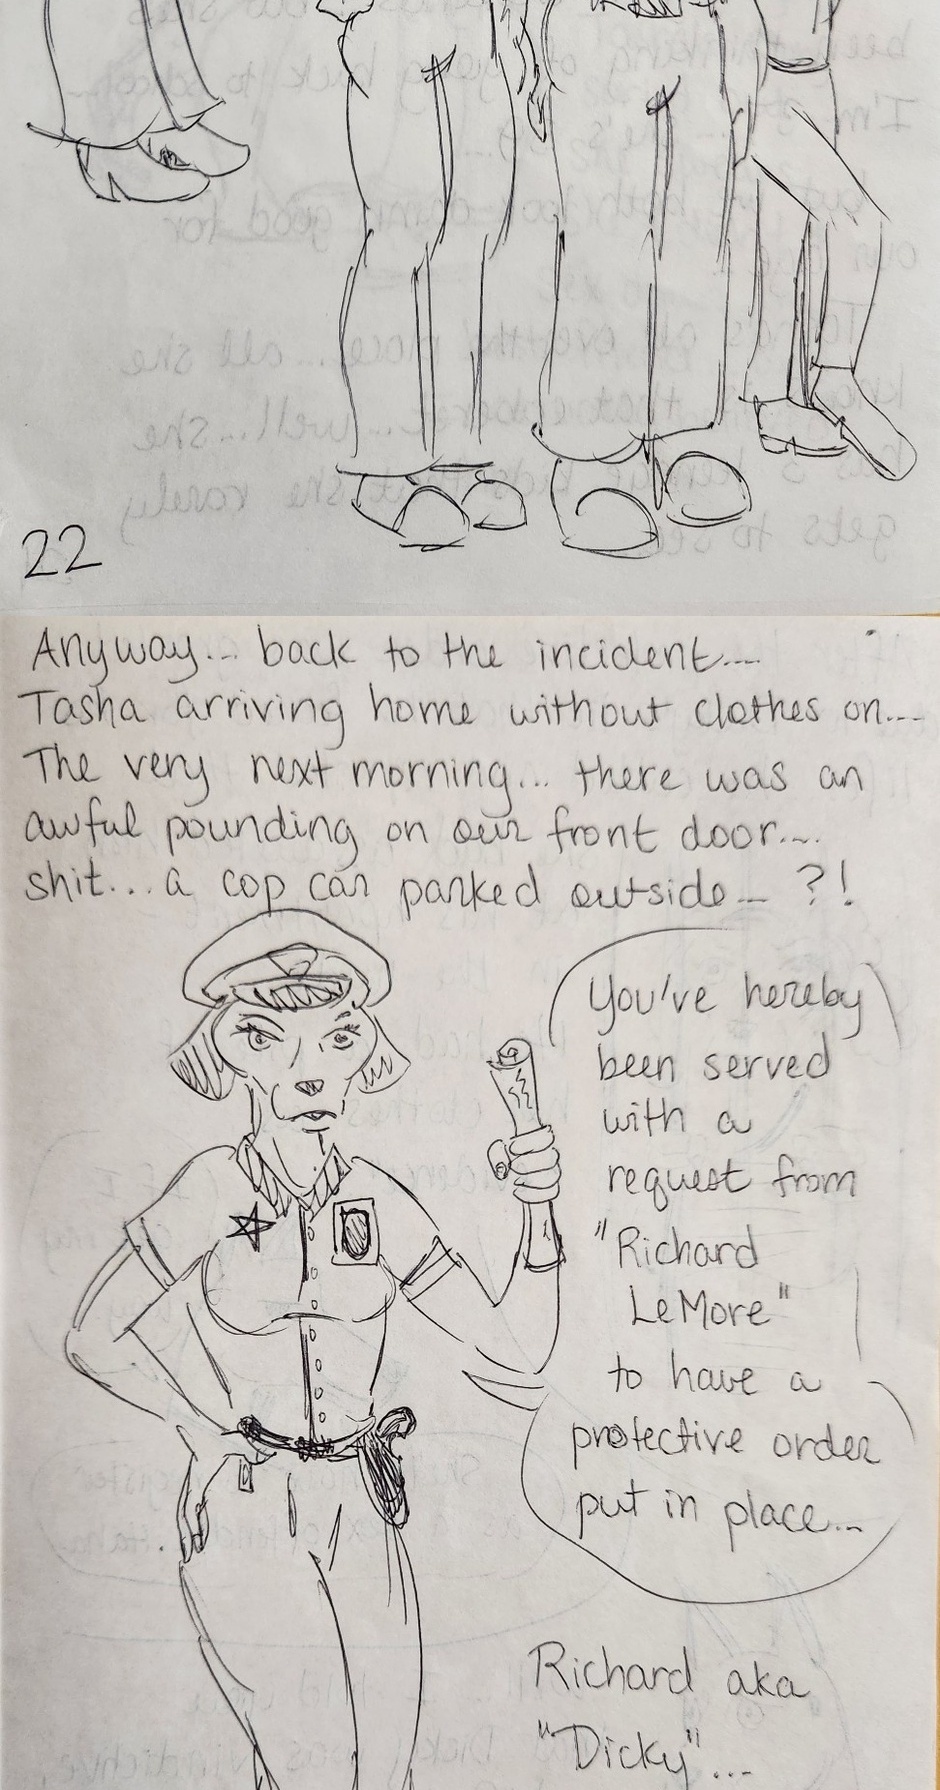 22
Anyway... back to the incident....
Tasha arriving home without clothes on....
The very next morning... there was an
awful pounding on our front door....
shit...a cop car parked outside... ?!
You've hereby
been served
with a
request from
"Richard
LeMore"
to have a
protective order
put in place...
Richard aka
"Dicky"...